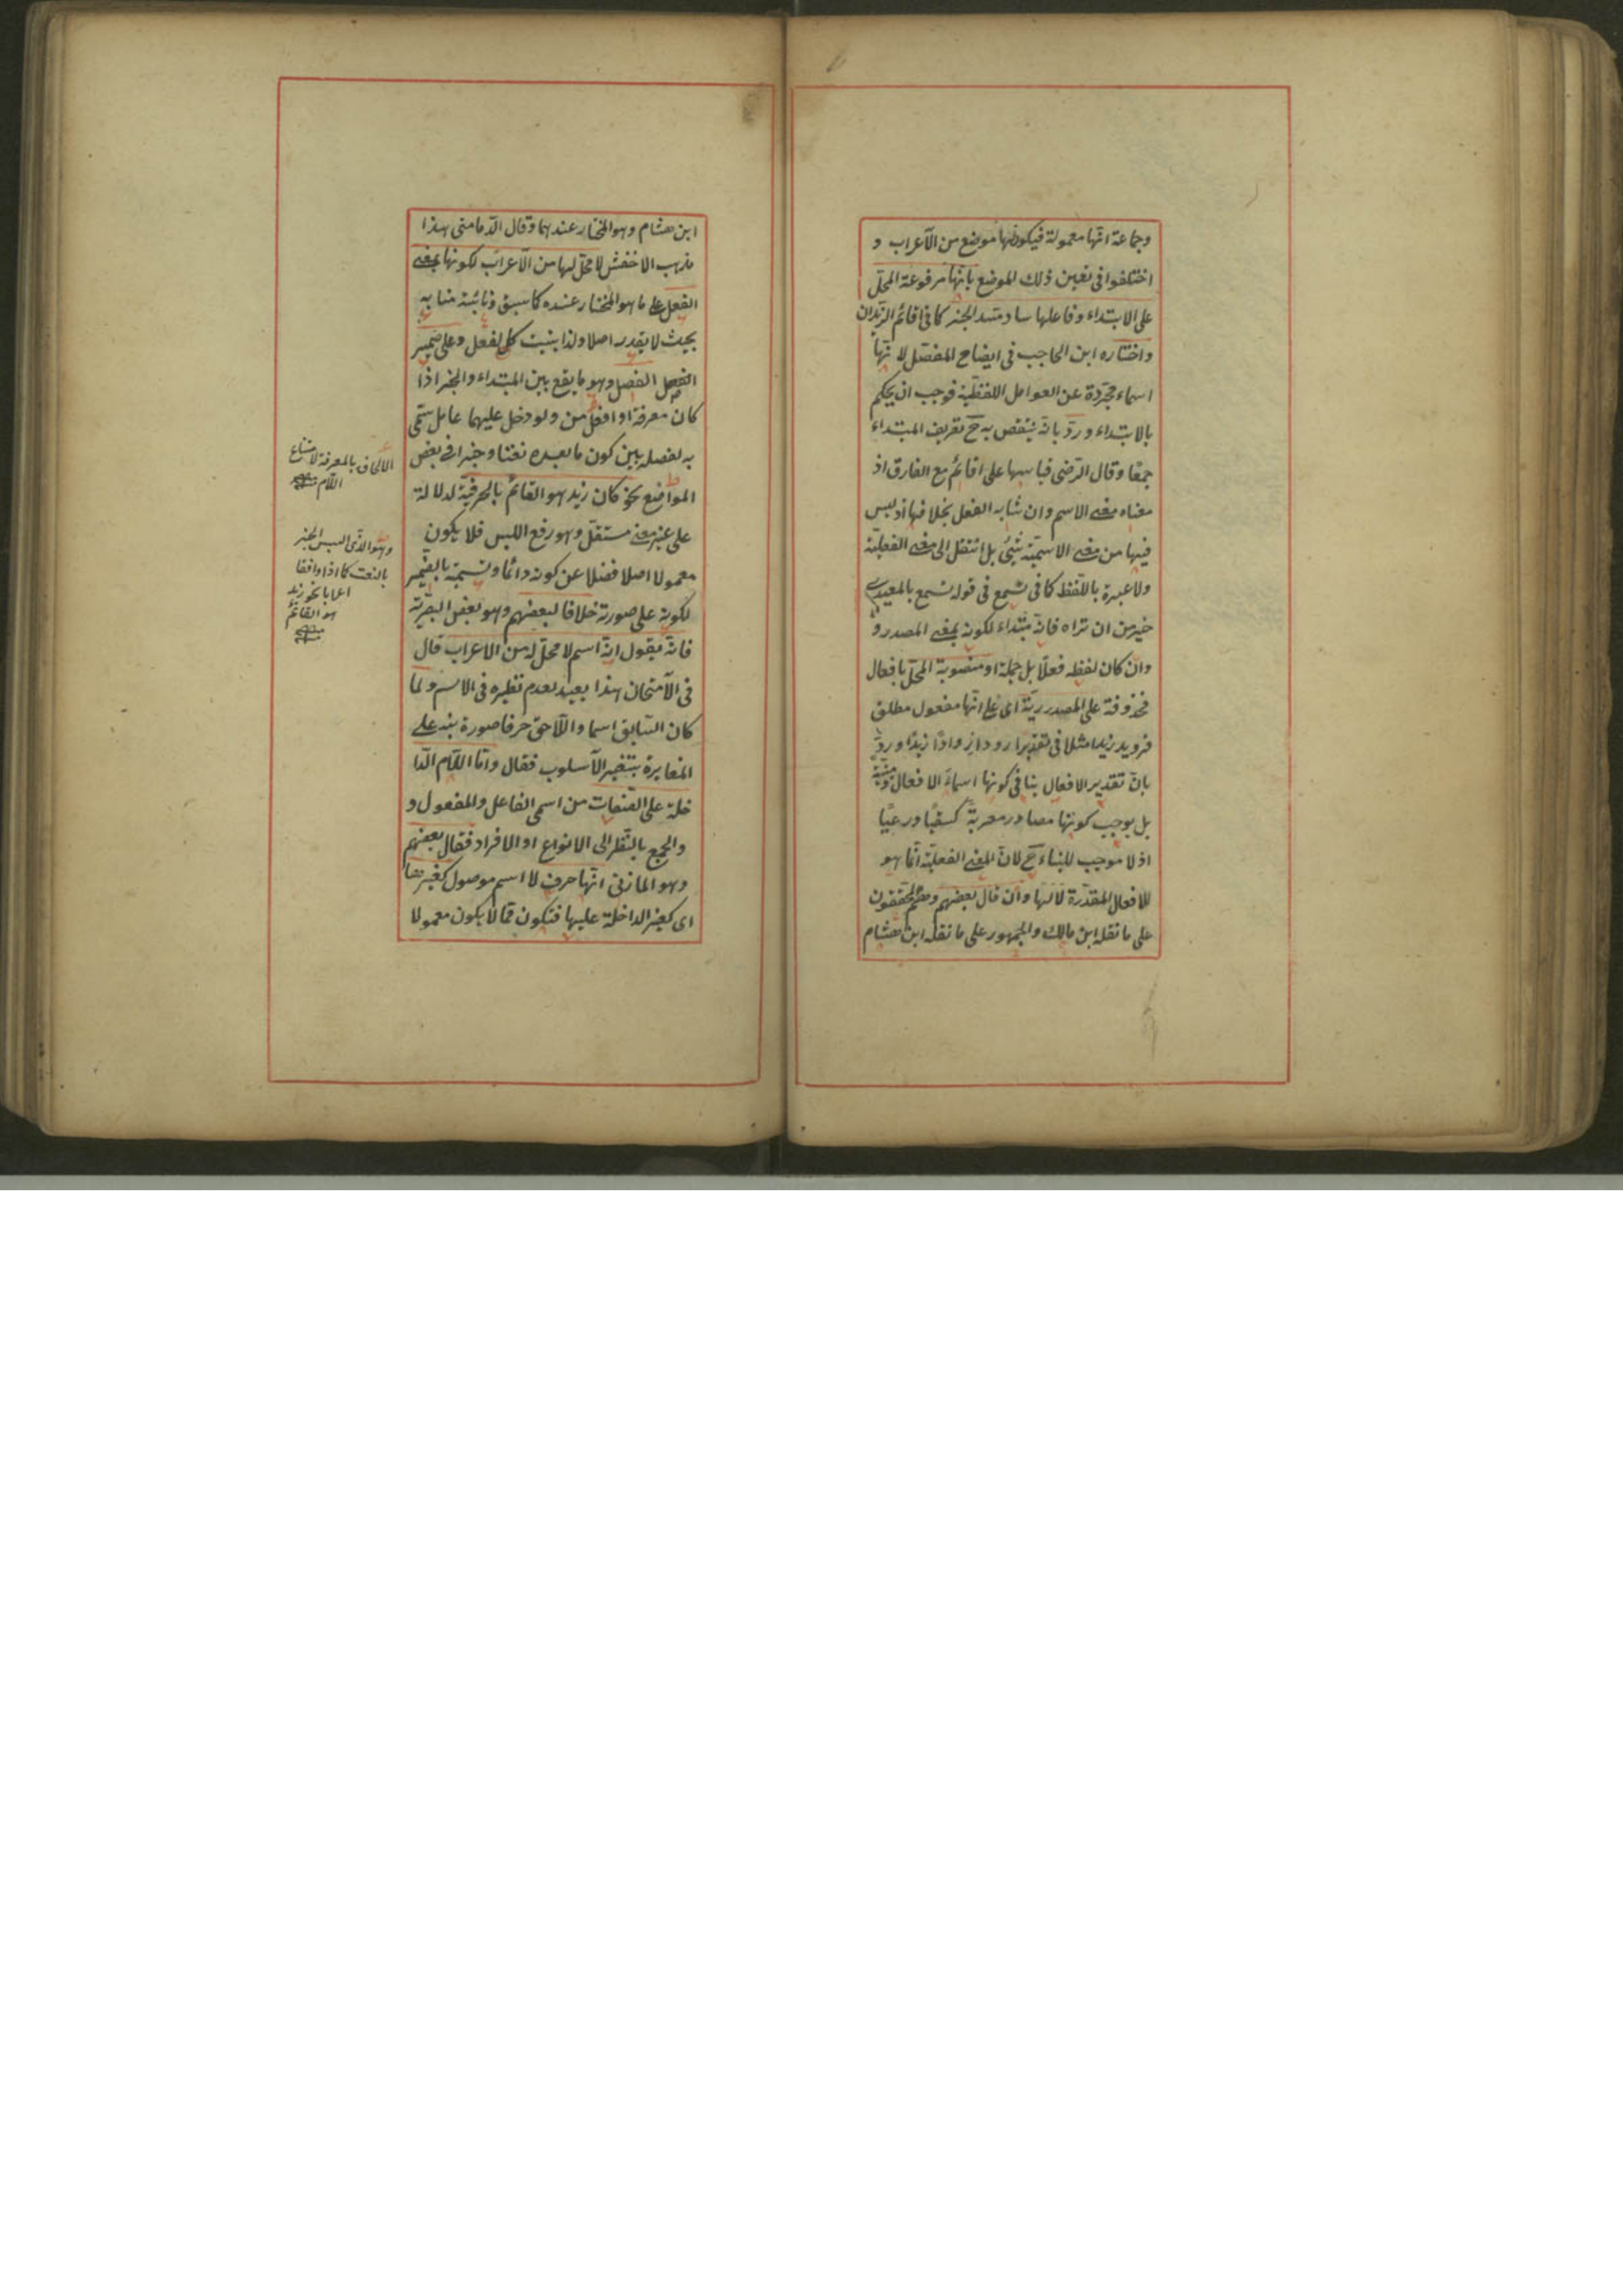 وجماعة انها معمولة فيكون لها موضع من الاعراب و
اختلفوا فى تعيين ذلك الموضع بانها مرفوعة المحل
على الابتداء وفاعلها ساد مسد الخبر كما فى اقائم الزيدان
واختاره ابن الحاجب فى ايضاح المفصل لانها
اسماء مجردة عن العوامل اللفظية فوجب ان يحكم
بالابتداء ورد بانه ينتقص به ح تعريف المبتداء
جمعا وقال الرضى قياسها على اقائم مع الفارق اذ
معناه معنى الاسم وان شابه الفعل بخلافها اذ ليس
فيها من معنى الاسمية شئ بل انتقل الى معنى الفعلية
ولا عبرة باللفظ كما فى تسمع فى قوله تسمع بالمعيدى
خير من ان تراه فانه مبتداء لكونه بمعنى المصدر و
وان كان لفظه فعلا بل جملة او منصوبة المحل بافعال
محذوفة على المصدرية اى على انها مفعول مطلق
فرويد زيدا مثلا فى تقدير ارود اروادا زيدا ورد
بان تقدير الافعال ينافى كونها اسماء الافعال ومبنية
بل يوجب كونها مصادر معربة كسقيا ورعيا
اذ لا موجب للبناء ح لان المعنى الفعلية انما هو
للافعال المقدرة لا لها وان قال بعضهم وهم المحققون
على ما نقله ابن مالك والجمهور على ما نقله ابن هشام
ابن هشام وهو المختار عندهما وقال الدمامنى هذا
مذهب الاخفش لا محل لها من الاعراب لكونها بمعنى
الفعل على ما هو المختار عنده كما سبق ونائبة منابه
بحيث لا يقدر اصلا ولذا بنيت كالفعل وعلى ضمير
الفصل الفصل وهو ما يقع بين المبتداء والخبر اذا
كان معرفة او افعل من ولو دخل عليهما عامل سمى
به لفصله بين كون ما بعده نعتا وخبرا فى بعض
المواضع نحو كان زيد هو القائم بالحرفية لدلالته
على غير معنى مستقل وهو رفع اللبس فلا يكون
معمولا اصلا فضلا عن كونه دائما وتسميته بالضمير
لكونه على صورته خلافا لبعضهم وهو بعض البصرية
فانه يقول انه اسم لا محل له من الاعراب قال
فى الامتحان هذا بعيد لعدم نظيره فى الاسم ولما
كان السابق اسما واللاحق حرفا صورة نبه على
المغايرة بتغيير الاسلوب فقال واما اللام الدا
خلة على الصفات من اسمى الفاعل والمفعول و
والجمع بالنظر الى الانواع او الافراد فقال بعضهم
وهو المازنى انها حرف لا اسم موصول كغيرها
اى كغير الداخلة عليها فتكون مما لا يكون معمولا
لالحاق بالمعرفة لامتناع
اللام منه
وهو الذى التبس الخبر
بالنعت كما اذا وافقا
اعرابا نحو زيد
هو القائم
منه